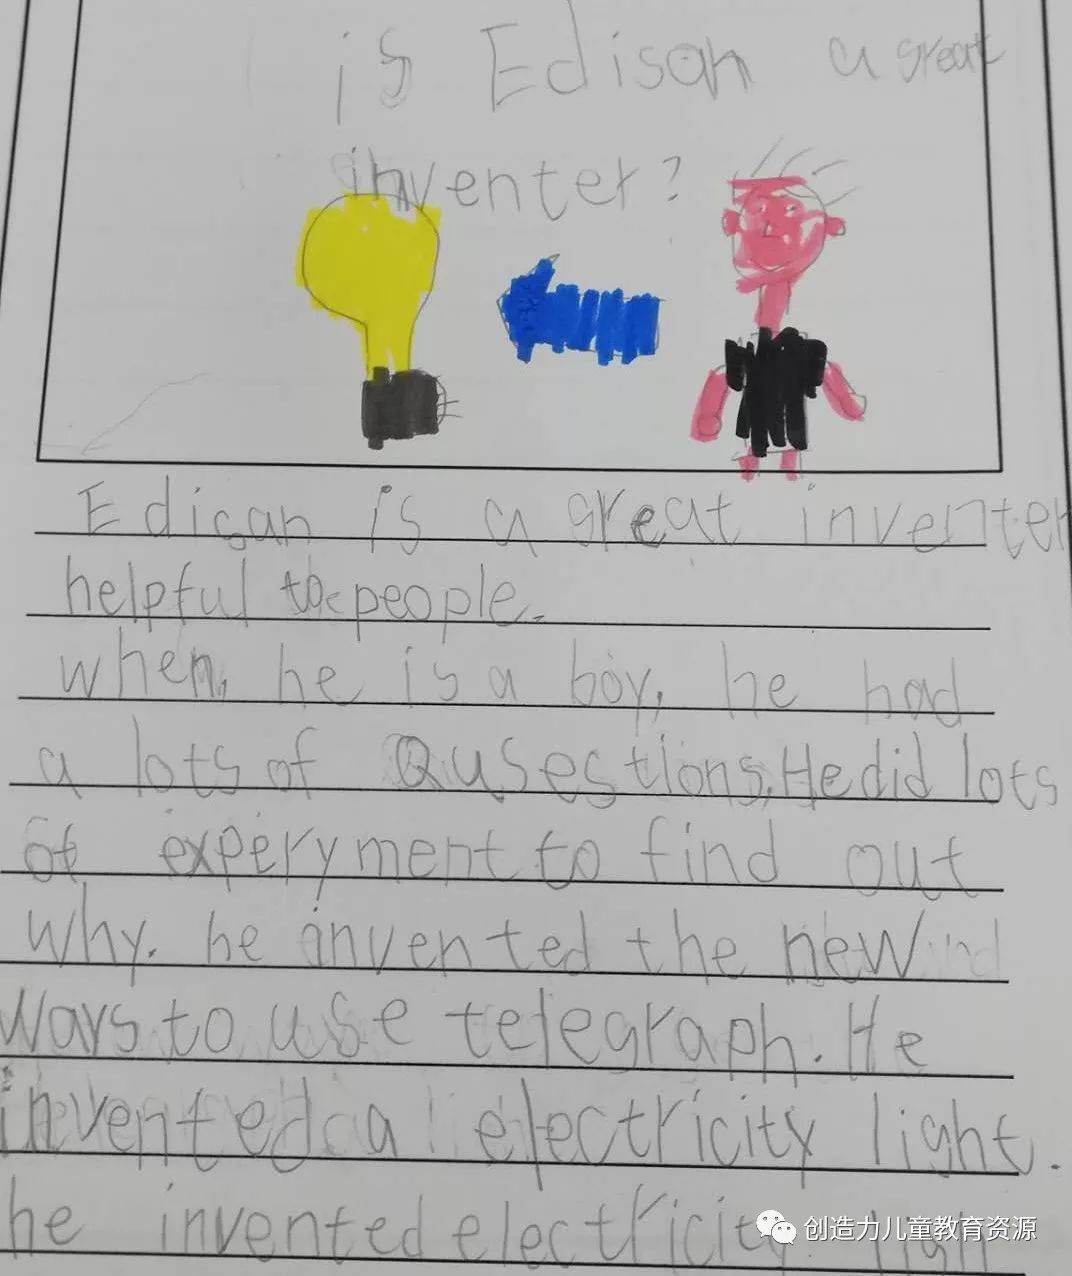 is Edison a great
inventer?
Edisan is a great inventer
helpful to people.
when, he is a boy, he had
a lots of Qusestions. He did lots
of experyment to find out
why. he invented the new
ways to use telegraph. He
invented a electricity light.
he invented electricity light
创造力儿童教育资源